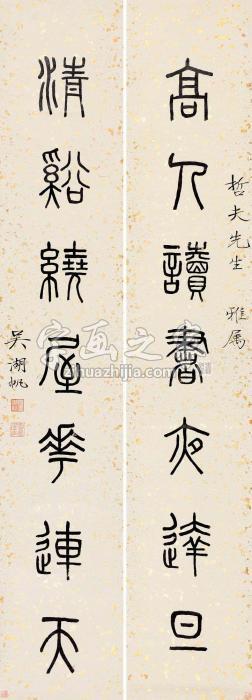 哲夫先生 雅属
高人讀書夜達旦
清谿繞屋花連天
吳湖帆
字画之家
huazhijia.com